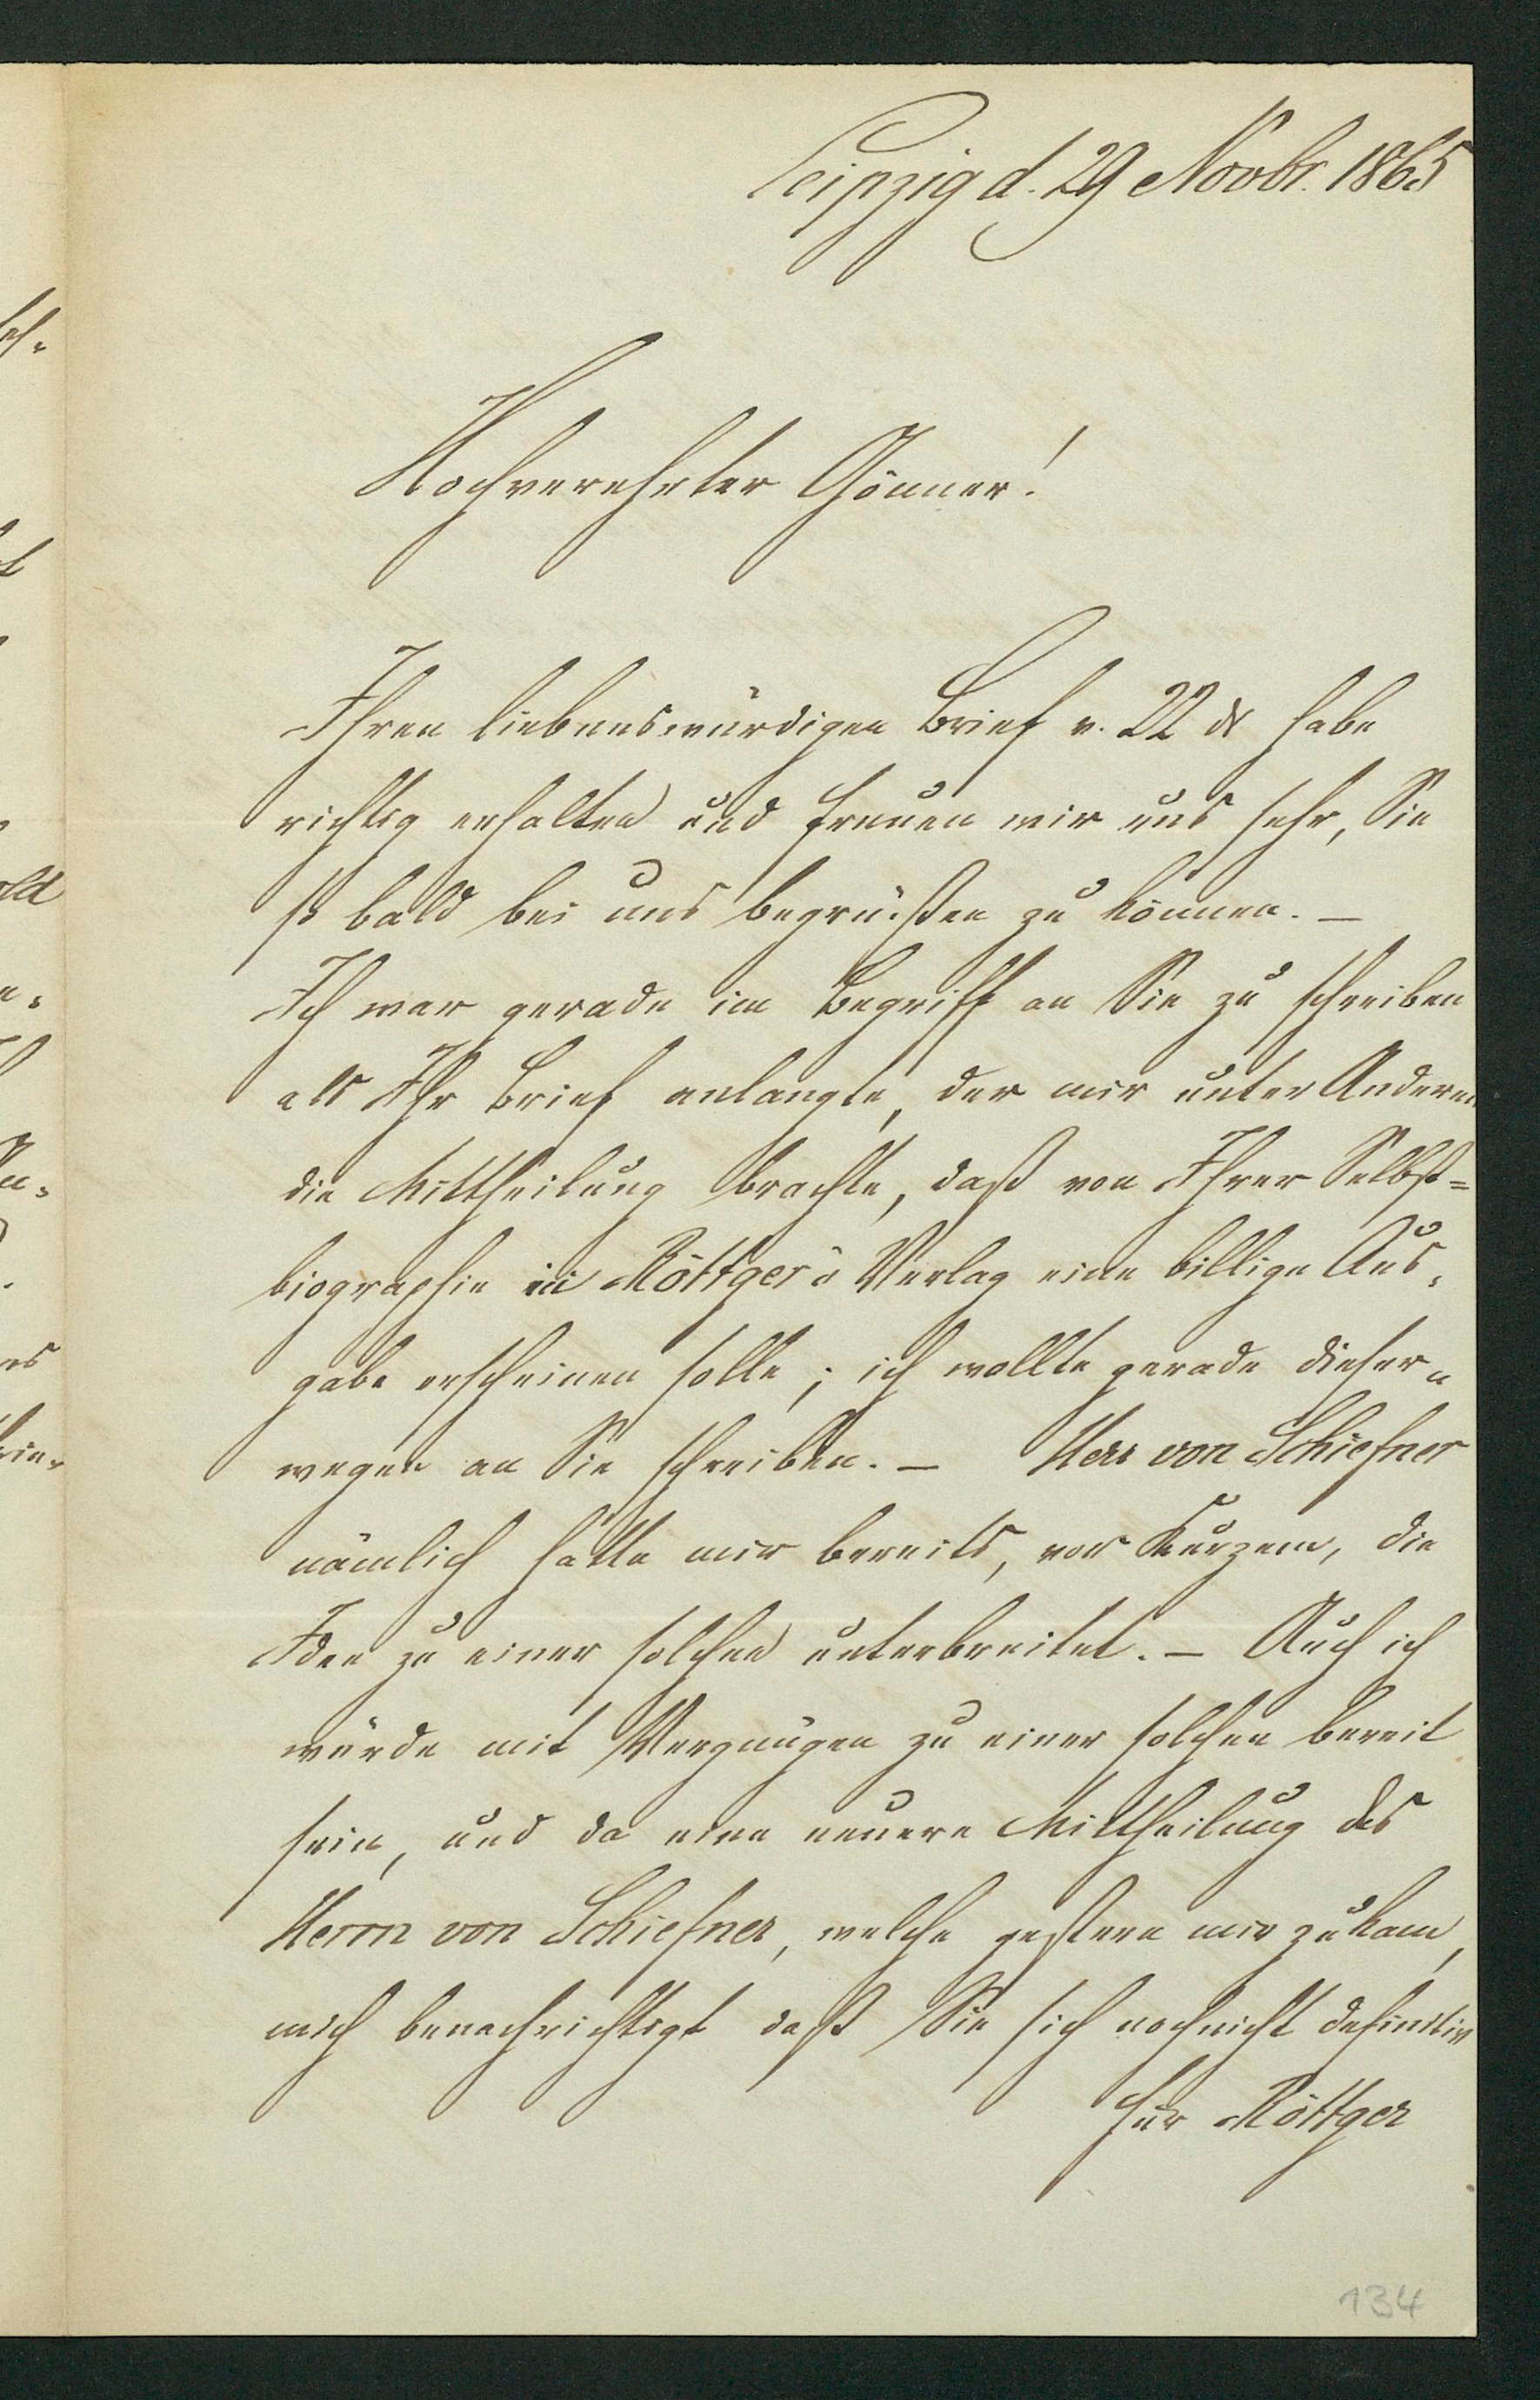 Leipzig d. 29 Novbr. 1865
Hochverehrter Gönner!
Ihren liebenswürdigen Brief v. 22 ds habe
richtig erhalten und freuen wir uns sehr, Sie
so bald bei uns begrüßen zu können. –
Ich war gerade im Begriff an Sie zu schreiben
als Ihr Brief anlangte, der mir unter Anderem
die Mittheilung brachte, daß von Ihrer Selbst=
biographie in Röttger's Verlag eine billige Aus-
gabe erscheinen solle; ich wollte gerade dieser-
wegen an Sie schreiben. – Herr von Schiefner
nämlich hatte mir bereits, vor Kurzem, die
Idee zu einer solchen unterbreitet. – Auch ich
würde mit Vergnügen zu einer solchen bereit
sein, und da eine neuere Mittheilung des
Herrn von Schiefner, welche gestern mir zukam,
mich benachrichtigt daß Sie sich noch nicht definitiv
für Röttger
134